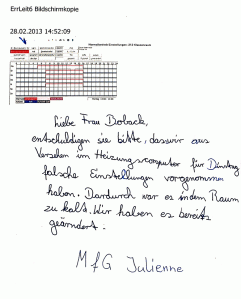 ErrLeit6 Bildschirmkopie
28.02.2013 14:52:09
Liebe Frau Doback,
entschuldigen sie bitte, dass wir aus
Versehen im Heizungscomputer für Dienstag
falsche Einstellungen vorgenommen
haben. Dardurch war es in dem Raum
zu kalt. Wir haben es bereits
geänndert.
MfG Julienne